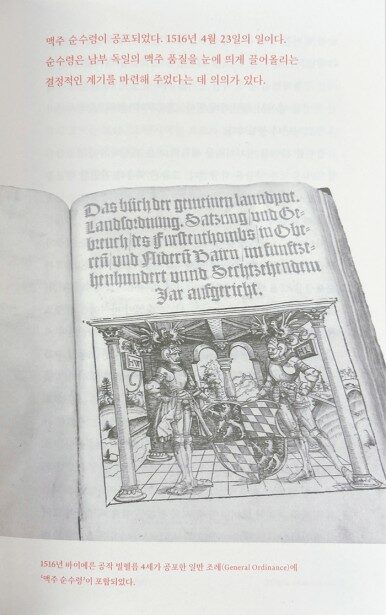 맥주 순수령이 공포되었다. 1516년 4월 23일의 일이다.
순수령은 남부 독일의 맥주 품질을 눈에 띄게 끌어올리는
결정적인 계기를 마련해 주었다는 데 의의가 있다.
Das büch der gemeinen lanndpot.
Landsordnung. Satzung vnd Ge-
breuch des Fürstenthombs in Obe-
ren vnd Nidern Bairn im funftze-
henhundert vnnd Sechtzehendem
Jar aufgericht.
1516년 바이에른 공작 빌헬름 4세가 공포한 일반 조례(General Ordinance)에
‘맥주 순수령’이 포함되었다.